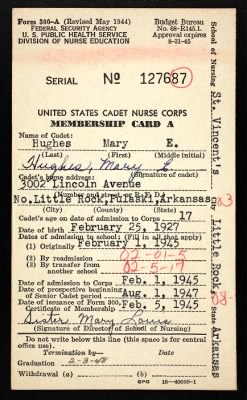 Form 300-A (Revised May 1944)
FEDERAL SECURITY AGENCY
U. S. PUBLIC HEALTH SERVICE
DIVISION OF NURSE EDUCATION
Budget Bureau
No. 68-R145.1.
Approval expires
8-31-45
SERIAL No 127687
UNITED STATES CADET NURSE CORPS
MEMBERSHIP CARD A
Name of Cadet:
Hughes Mary E.
(Last) (First) (Middle initial)
Hughes, Mary E.
Cadet's home address: (Signature of cadet)
3002 Lincoln Avenue
(Number and street or R. F. D.)
No. Little Rock, Pulaski, Arkansas
(City) (County) (State)
Cadet's age on date of admission to Corps 17
Date of birth February 25, 1927
Dates of admission to school: (Fill in all that apply)
(1) Originally February 1, 1945
(2) By readmission 02-01-5
(3) By transfer from
another school 02-5-17
Date of admission to Corps Feb. 1, 1945
Date of prospective beginning
of Senior Cadet period Aug. 1, 1947
Date of issuance of Form 300,
Certificate of Membership Feb. 5, 1945
Sister Mary Louis
(Signature of Director of School of Nursing)
Do not write below this line (this space is for central
office use).
Termination by Date
Graduation 2-3-48
Withdrawal (a) (b)
GPO 16-40095-1
School of Nursing St. Vincent's
City Little Rock
State Arkansas